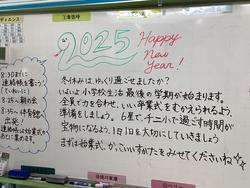 2025
Happy
New
Year!
冬休みは、ゆっくり過ごせましたか?
いよいよ小学校生活最後の学期が始まります。
全員で力を合わせ、いい卒業式をむかえられるよう、
準備をしましょう。6星で、チニ小で過ごす時間が
宝物になるよう、1日1日を大切にしていきましょう
まずは始業式、かっこいいすがたをみせてくださいね
8:30までに
連絡帳を書こう!
(ていねいに)
8:25~朝の会
8:35~体育館へ
出発!
連絡帳は始業式の
あとに集めます。